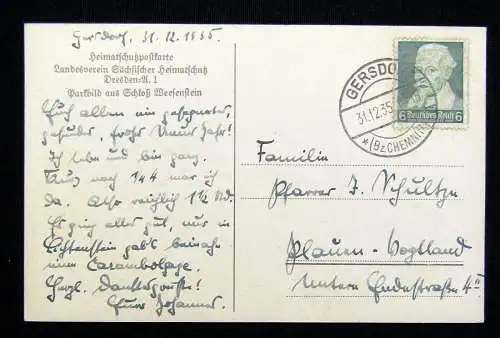 Gersdorf, 31.12.1935.
Heimatschutzpostkarte
Landesverein Sächsischer Heimatschutz
Dresden-A. 1
Parkbild aus Schloß Weesenstein
Euch allen ein gesegnetes,
gesundes, frohes Neues Jahr!
Ich lebe und bin ganz.
Kurz nach 1/4 4 war ich
da. Also reichlich 1 1/2 Std.
Es ging alles gut, nur in
Lichtenstein gab's beinahe
eine Carambolage.
Herzl. Dankesgrüße!
Euer Johannes.
GERSDO
31.12.35
* (Bz. CHEMN
6 Deutsches Reich 6
Familie
Pfarrer J. Schultze
Plauen-Vogtland
Untere Endestraße 4 II